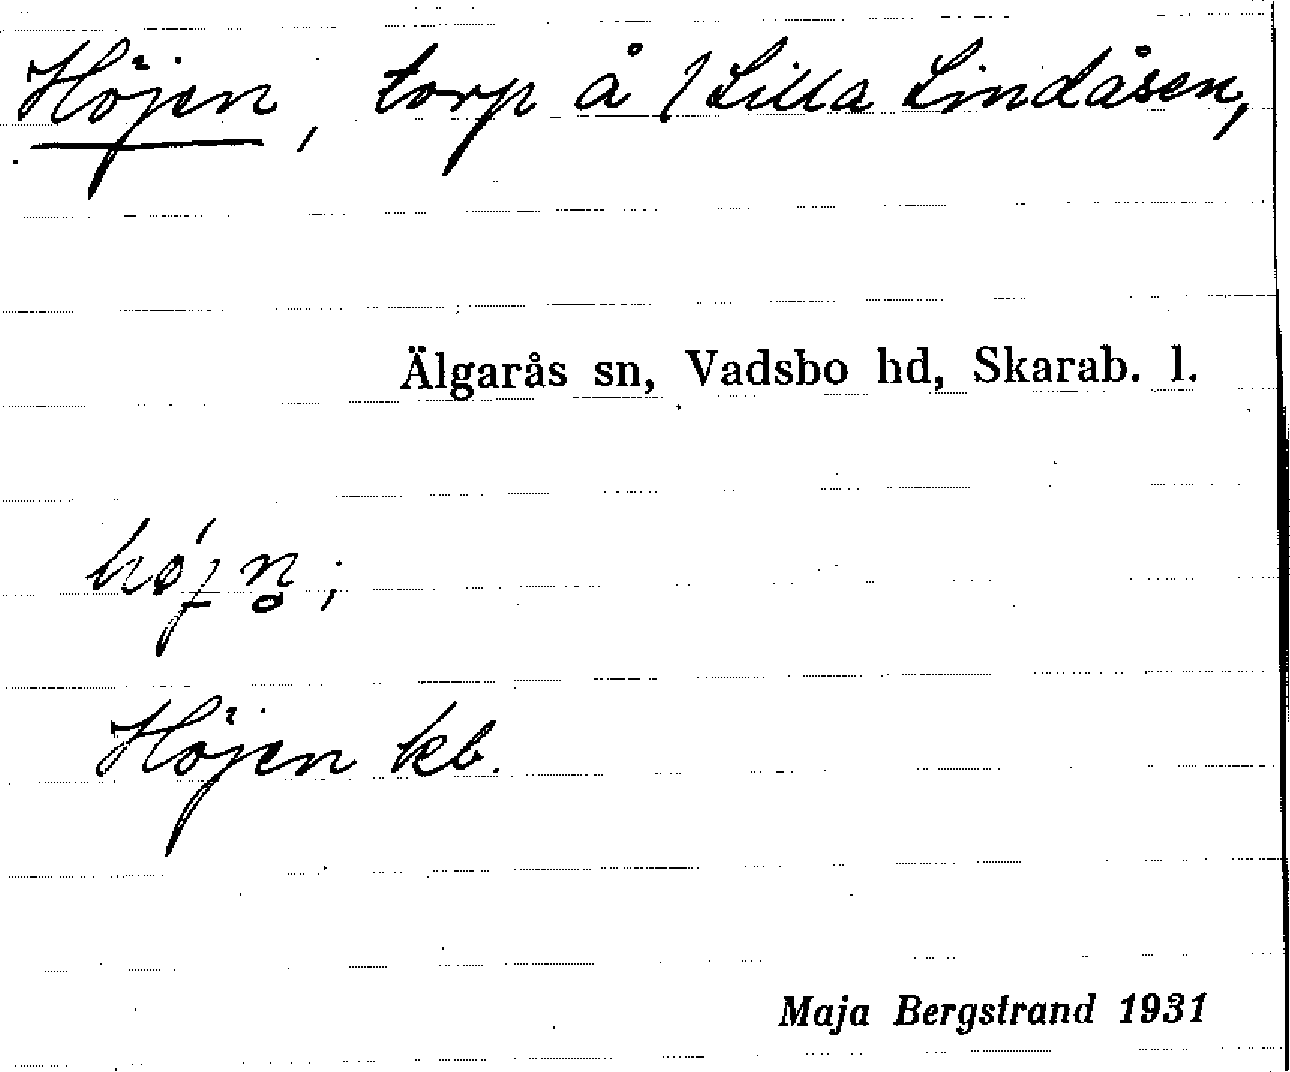 Höjen, torp å / Lilla Lindåsen,
Älgarås sn, Vadsbo hd, Skarab. l.
hǿjn̥;
Höjen kb.
Maja Bergstrand 1931